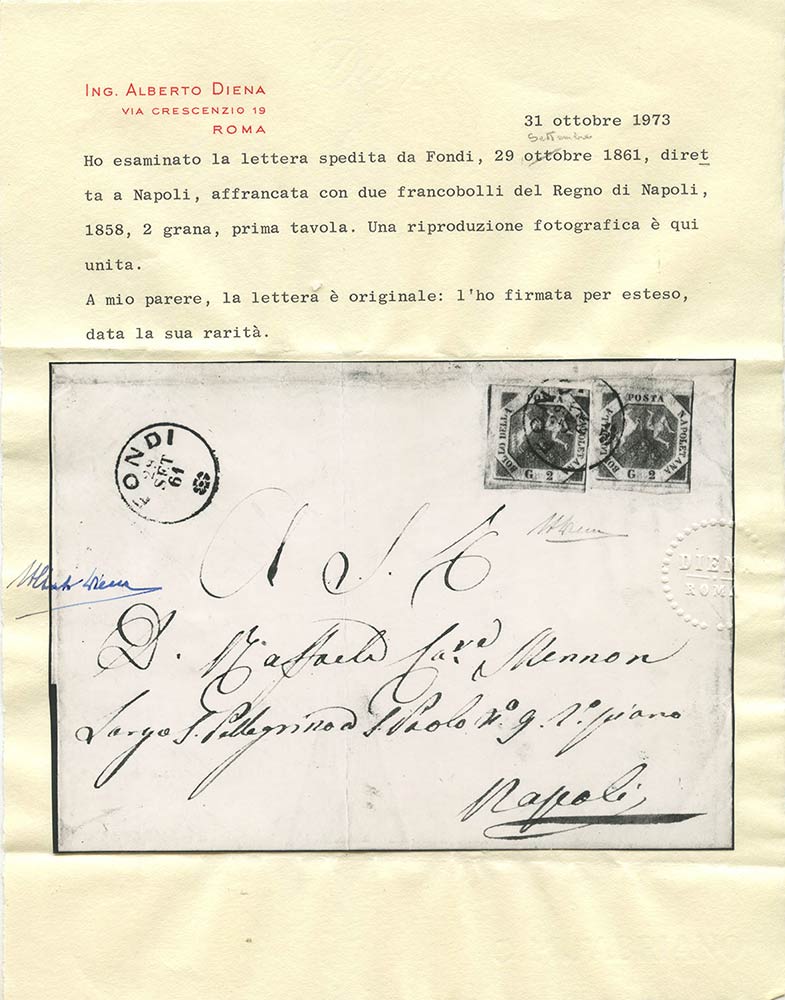 ING. ALBERTO DIENA
VIA CRESCENZIO 19
ROMA
31 ottobre 1973
settembre
Ho esaminato la lettera spedita da Fondi, 29 ottobre 1861, diret
ta a Napoli, affrancata con due francobolli del Regno di Napoli,
1858, 2 grana, prima tavola. Una riproduzione fotografica è qui
unita.
A mio parere, la lettera è originale: l'ho firmata per esteso,
data la sua rarità.
BOLLO DELLA POSTA NAPOLETANA
G 2
BOLLO DELLA POSTA NAPOLETANA
G 2
FONDI
SET
61
A S. E.
Alberto Diena
DIENA
ROMA
D. Raffaele Cav. Mennon
Largo S. Pellegrino a S. Paolo No. 9. 2o. piano
Napoli